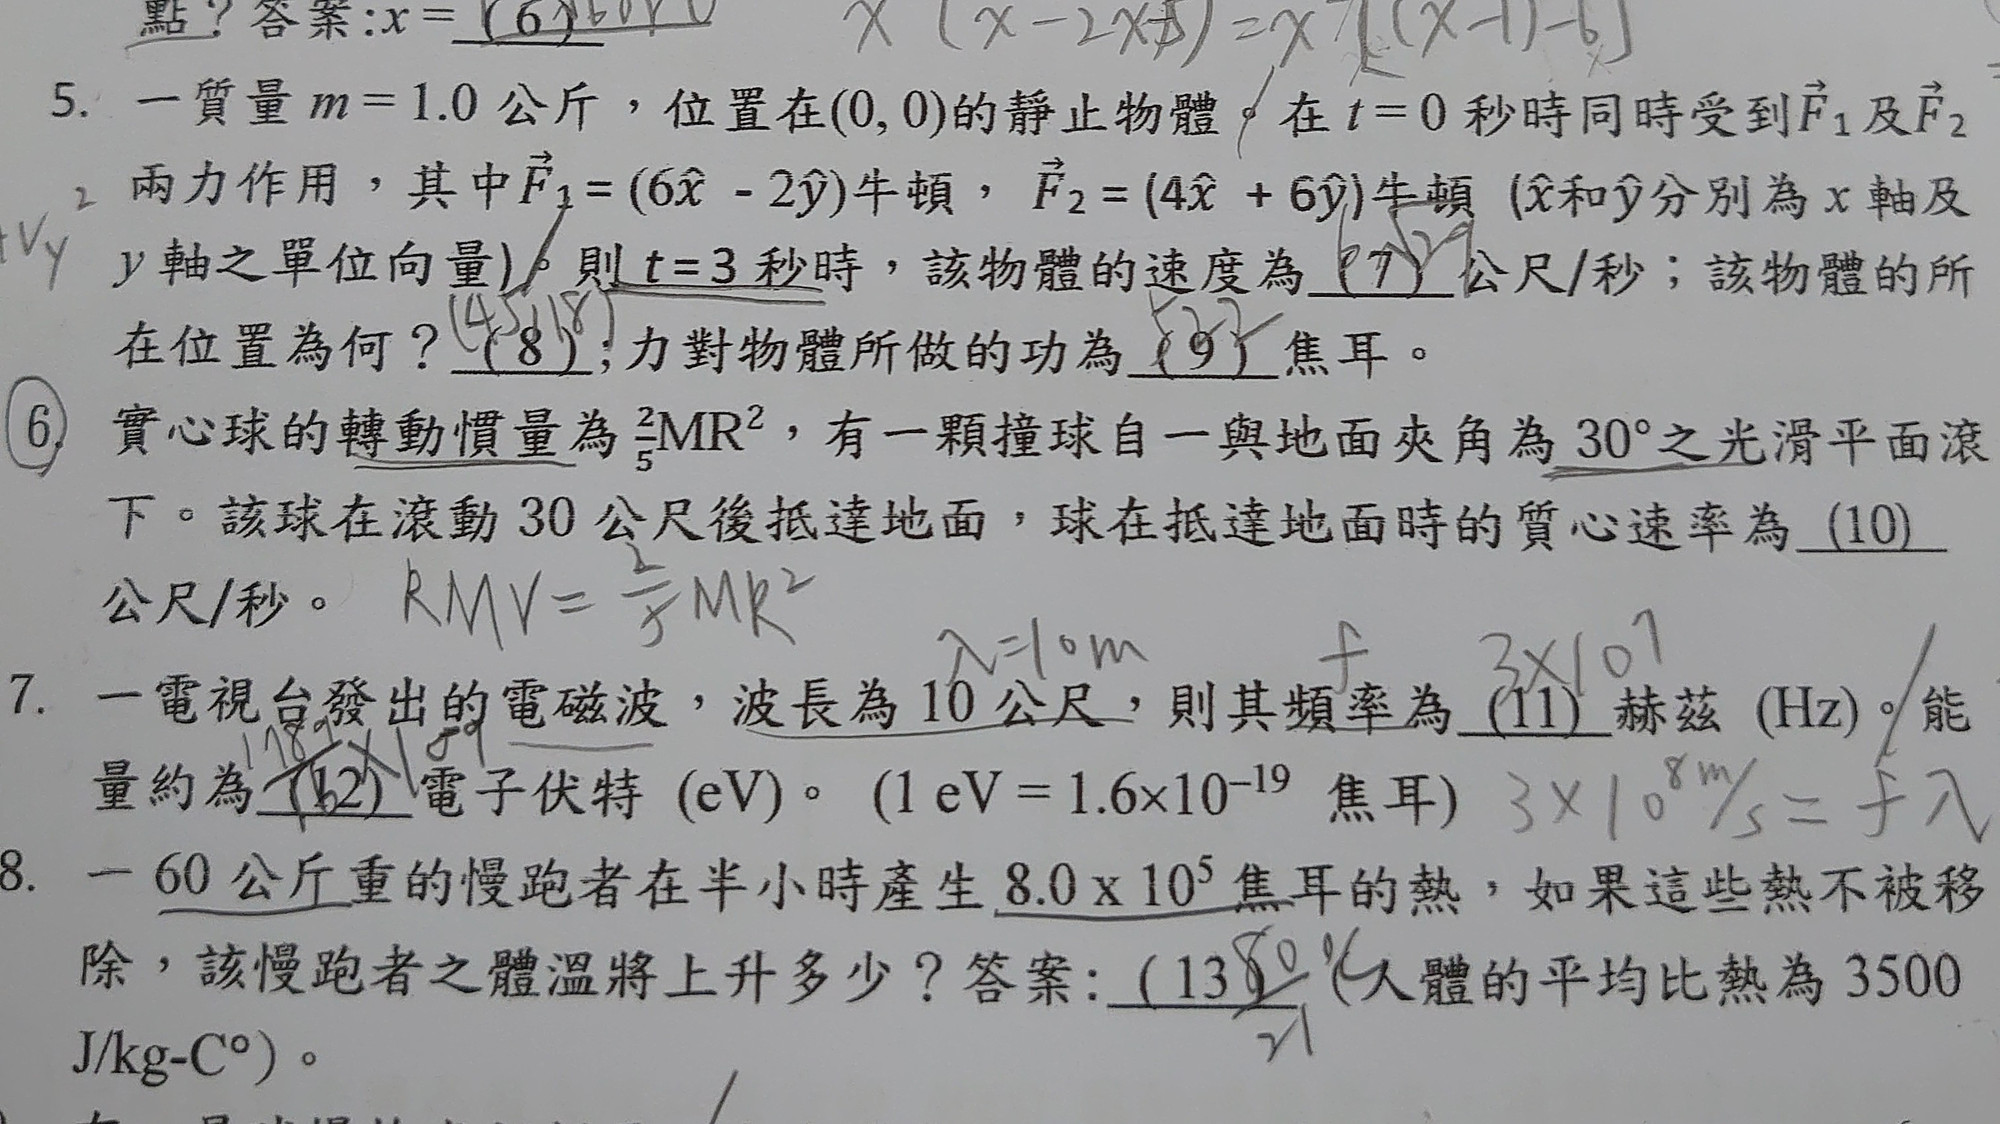 點？答案:x = (6)
x (x-2x+5) = x [(x-1)-6]
5. 一質量 m = 1.0 公斤，位置在(0, 0)的靜止物體。在 t = 0 秒時同時受到F⃗₁及F⃗₂
兩力作用，其中F⃗₁ = (6x̂ - 2ŷ)牛頓， F⃗₂ = (4x̂ + 6ŷ)牛頓 (x̂和ŷ分別為 x 軸及
+Vy²
y 軸之單位向量)。則 t = 3 秒時，該物體的速度為 (7) 公尺/秒；該物體的所
(45,18)
在位置為何？ (8) ; 力對物體所做的功為 (9) 焦耳。
6. 實心球的轉動慣量為 2/5MR²，有一顆撞球自一與地面夾角為 30°之光滑平面滾
下。該球在滾動 30 公尺後抵達地面，球在抵達地面時的質心速率為 (10)
公尺/秒。 RMV = 2/5 MR²
λ=10m f 3×10⁷
7. 一電視台發出的電磁波，波長為 10 公尺，則其頻率為 (11) 赫茲 (Hz)。能
量約為 (12) 電子伏特 (eV)。 (1 eV = 1.6×10⁻¹⁹ 焦耳) 3×10⁸m/s = fλ
8. 一 60 公斤重的慢跑者在半小時產生 8.0 x 10⁵ 焦耳的熱，如果這些熱不被移
除，該慢跑者之體溫將上升多少？答案: (13) (人體的平均比熱為 3500
80/21 °C
J/kg-C°)。